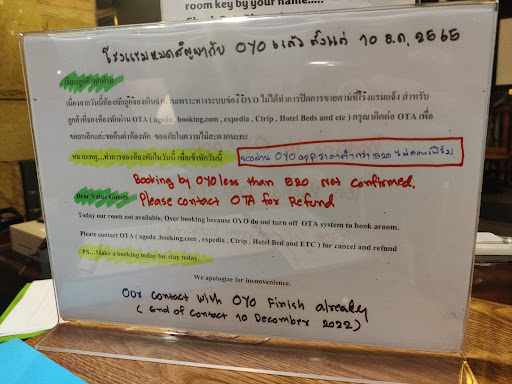 room key by your name.....
โรงแรมหมดสัญญากับ OYO แล้ว ตั้งแต่ 10 ธ.ค. 2565
เรียนลูกค้าทุกท่าน
เนื่องจากวันนี้ห้องพักถูกจองเกินจำนวนเพราะทางระบบของ OYO ไม่ได้ทำการปิดการขายตามที่โรงแรมแจ้ง สำหรับ
ลูกค้าที่จองห้องพักผ่าน OTA ( agoda , booking.com , expedia , Ctrip , Hotel Beds and etc ) กรุณาติดต่อ OTA เพื่อ
ขอยกเลิกและขอคืนค่าห้องพัก ขออภัยในความไม่สะดวกนะคะ
หมายเหตุ...ทำการจองห้องพักในวันนี้ เพื่อเข้าพักวันนี้
จองผ่าน OYO app ราคาต่ำกว่า 820 ไม่คอนเฟิร์ม
Booking by OYO less than 820 Not confirmed.
Dear Value Guests
Please contact OTA for Refund
Today our room not available, Over booking because OYO do not turn off OTA system to book aroom.
Please contact OTA ( agoda ,booking.com , expedia , Ctrip , Hotel Bed and ETC ) for cancel and refund
PS...Make a booking today for stay today.
We apologize for inconvenience.
Our contact with OYO Finish already
( End of contact 10 December 2022)